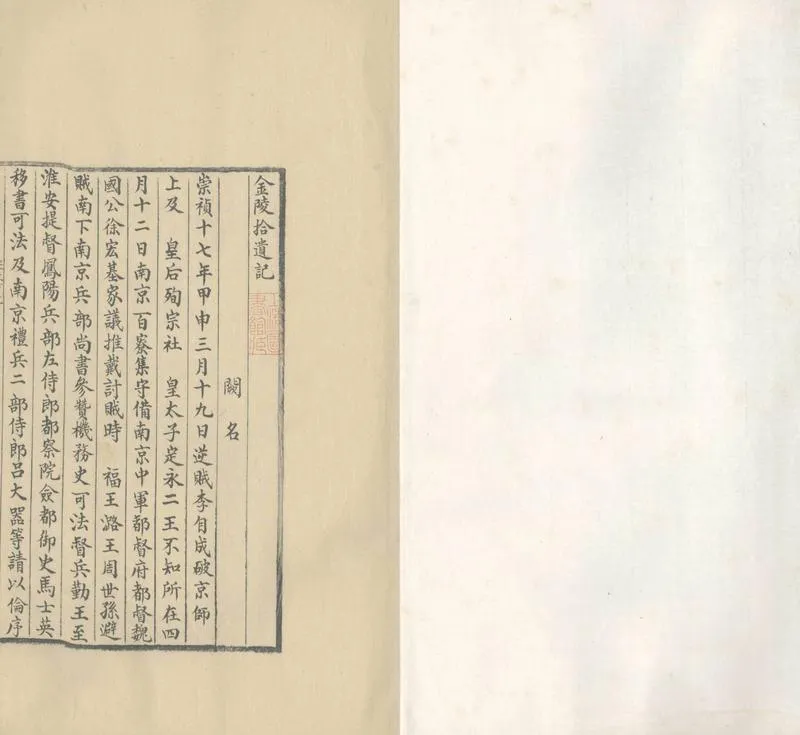 金陵拾遺記
闕名
崇禎十七年甲申三月十九日逆賊李自成破京師
上及 皇后殉宗社 皇太子定永二王不知所在四
月十二日南京百寮集守備南京中軍都督府都督魏
國公徐宏基家議推戴討賊時 福王潞王周世孫避
賊南下南京兵部尚書參贊機務史可法督兵勤王至
淮安提督鳳陽兵部左侍郎都察院僉都御史馬士英
移書可法及南京禮兵二部侍郎呂大器等請以倫序